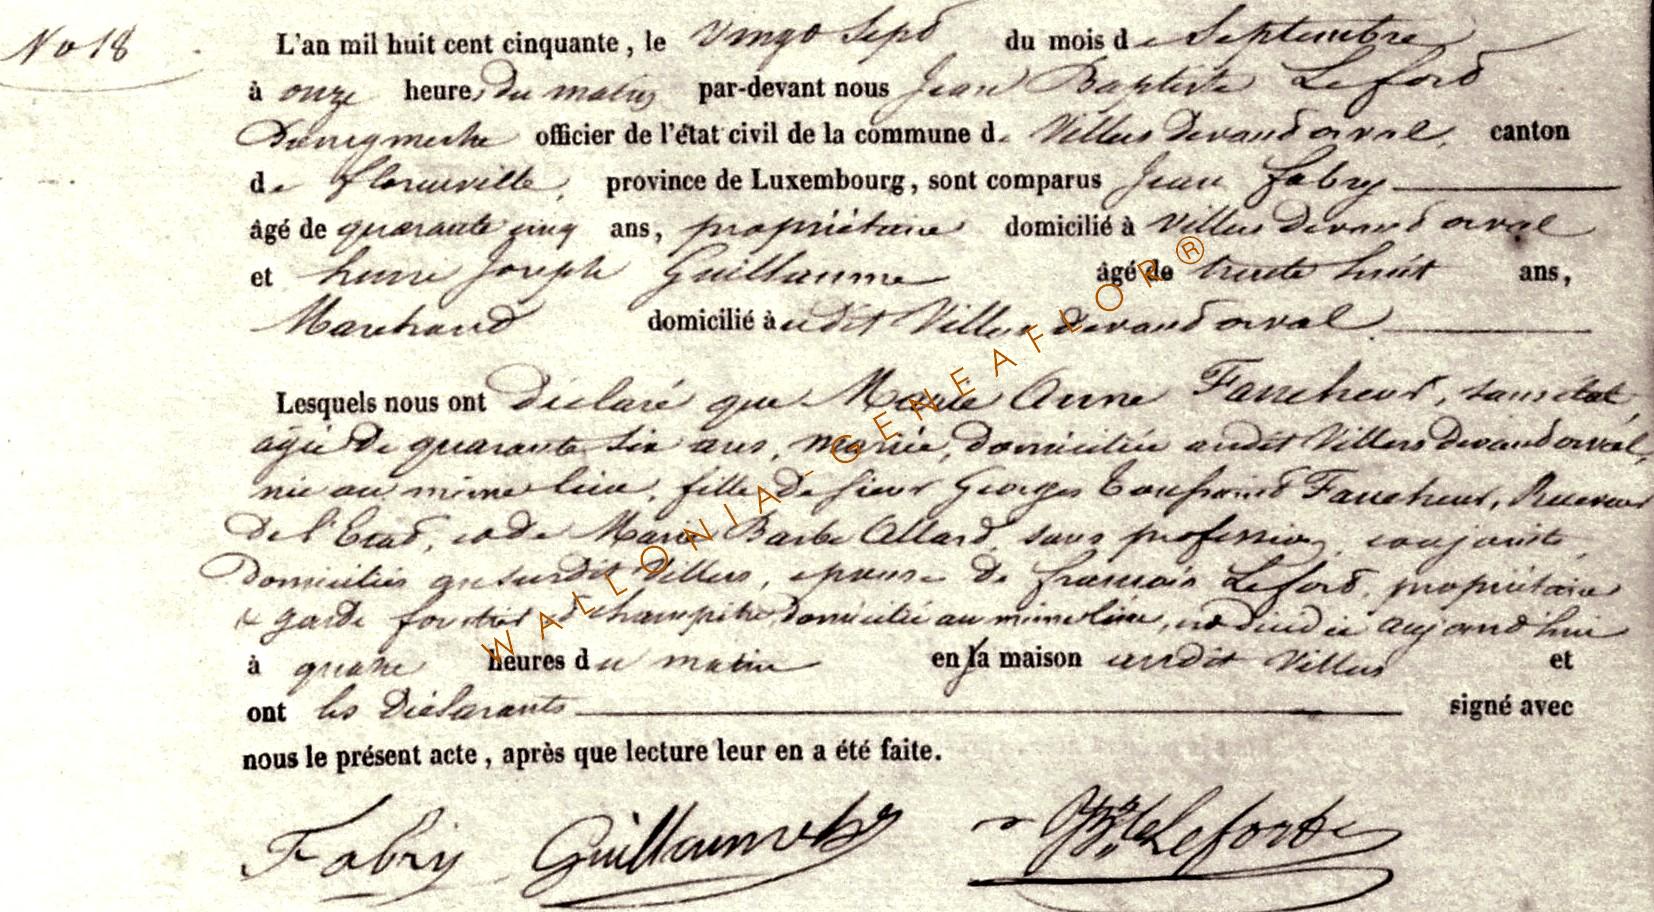 No 18
L'an mil huit cent cinquante, le vingt Sept du mois de Septembre
à onze heures du matin par-devant nous Jean Baptiste Lefort
Bourgmestre officier de l'état civil de la commune de Villers devant orval, canton
de florenville, province de Luxembourg, sont comparus Jean fabry
âgé de quarante cinq ans, propriétaire domicilié à Villers devant orval
et henri Joseph Guillaume âgé de trente huit ans,
Marchand domicilié à udit Villers devant orval
Lesquels nous ont déclaré que Marie Anne Faucheur, sans état,
agée de quarante six ans, mariée, domiciliée audit Villers devant orval,
née au même lieu, fille de sieur Georges Toussaint Faucheur, Receveur
de l'Etat, et de Marie Barbe Allard, sans profession, conjoints,
domiciliés au susdit Villers, epouse de françois Lefort, propriétaire
& garde forestier & champêtre, domicilié au même lieu, est décédée aujourd'hui
à quatre heures du matin en la maison audit Villers et
ont les déclarants signé avec
nous le présent acte, après que lecture leur en a été faite.
Fabry Guillaume JBte Lefort
WALLONIA-GENEAFLOR®